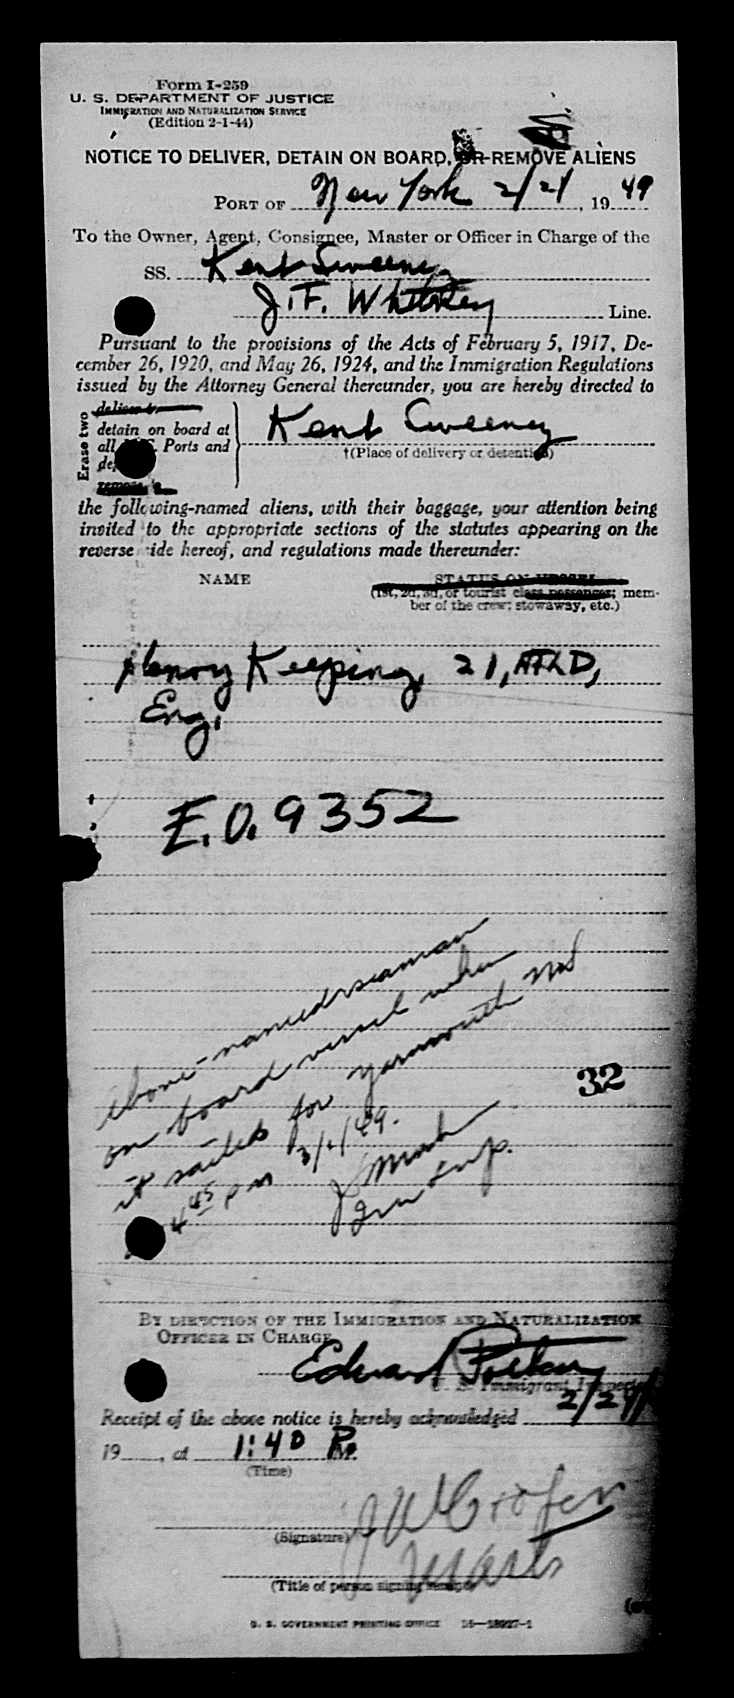 Form I-259
U. S. DEPARTMENT OF JUSTICE
IMMIGRATION AND NATURALIZATION SERVICE
(Edition 2-1-44)
NOTICE TO DELIVER, DETAIN ON BOARD, OR REMOVE ALIENS
PORT OF New York 2/21, 1949
To the Owner, Agent, Consignee, Master or Officer in Charge of the
SS. Kent Sweeney
J. F. Whitney Line.
Pursuant to the provisions of the Acts of February 5, 1917, De-
cember 26, 1920, and May 26, 1924, and the Immigration Regulations
issued by the Attorney General thereunder, you are hereby directed to
Erase two
deliver
detain on board at
all Ports and
remove
Kent Sweeney
†(Place of delivery or detention)
the following-named aliens, with their baggage, your attention being
invited to the appropriate sections of the statutes appearing on the
reverse side hereof, and regulations made thereunder:
NAME
STATUS ON VESSEL
(1st, 2d, 3d, or tourist class passenger; mem-
ber of the crew; stowaway, etc.)
Henry Keeping, 21, NFLD,
Eng.
E.O. 9352
Above-named seaman
on board vessel when
it sailed for Yarmouth
4 45 pm 3/1/49.
Imm Insp.
32
BY DIRECTION OF THE IMMIGRATION AND NATURALIZATION
OFFICER IN CHARGE
Edward
U. S. Immigrant Inspector
Receipt of the above notice is hereby acknowledged 2/21/
19 , at 1:40 P.M.
(Time)
(Signature)
(Title of person signing receipt)
U. S. GOVERNMENT PRINTING OFFICE 16—18927-1